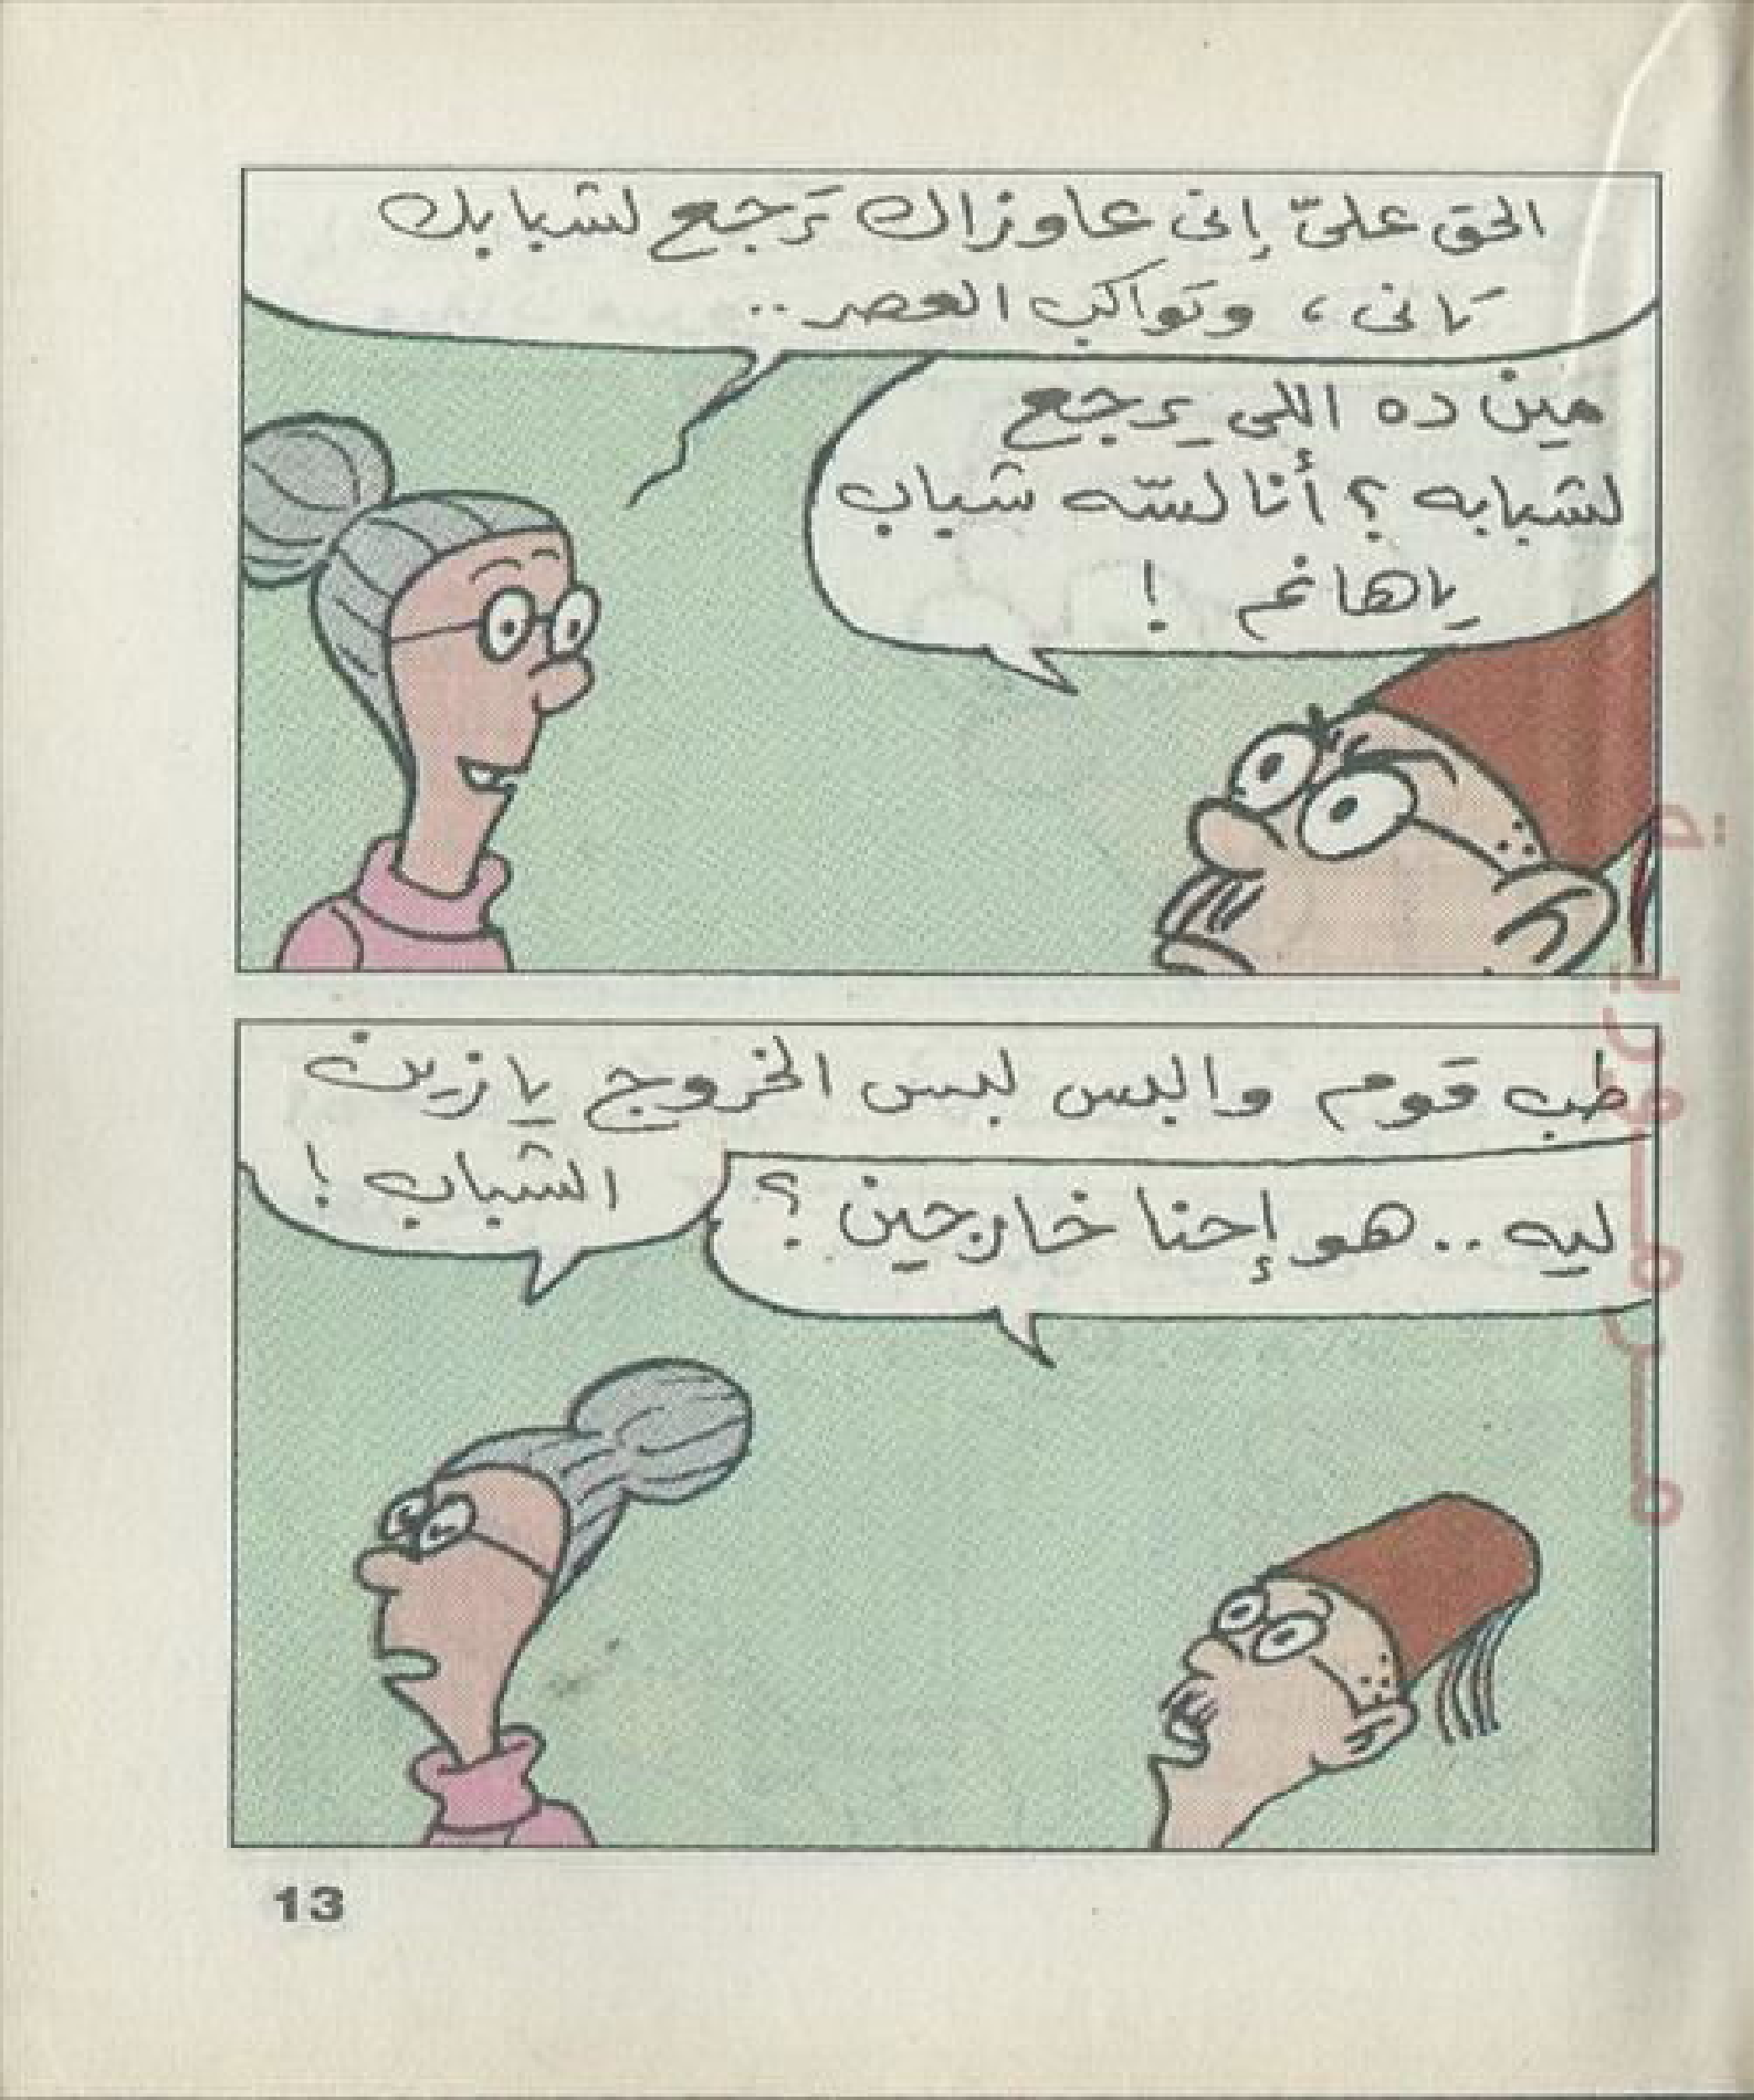 الحق علىّ إنى عاوزاك تَرجع لشبابك
تَانى ، وتواكب العصر ..
مين ده اللى يرجع
لشبابه ؟ أنا لسّه شباب
ياهانم !
طب قوم والبس لبس الخروج يا زين
الشباب !
ليه .. هو إحنا خارجين ؟
13